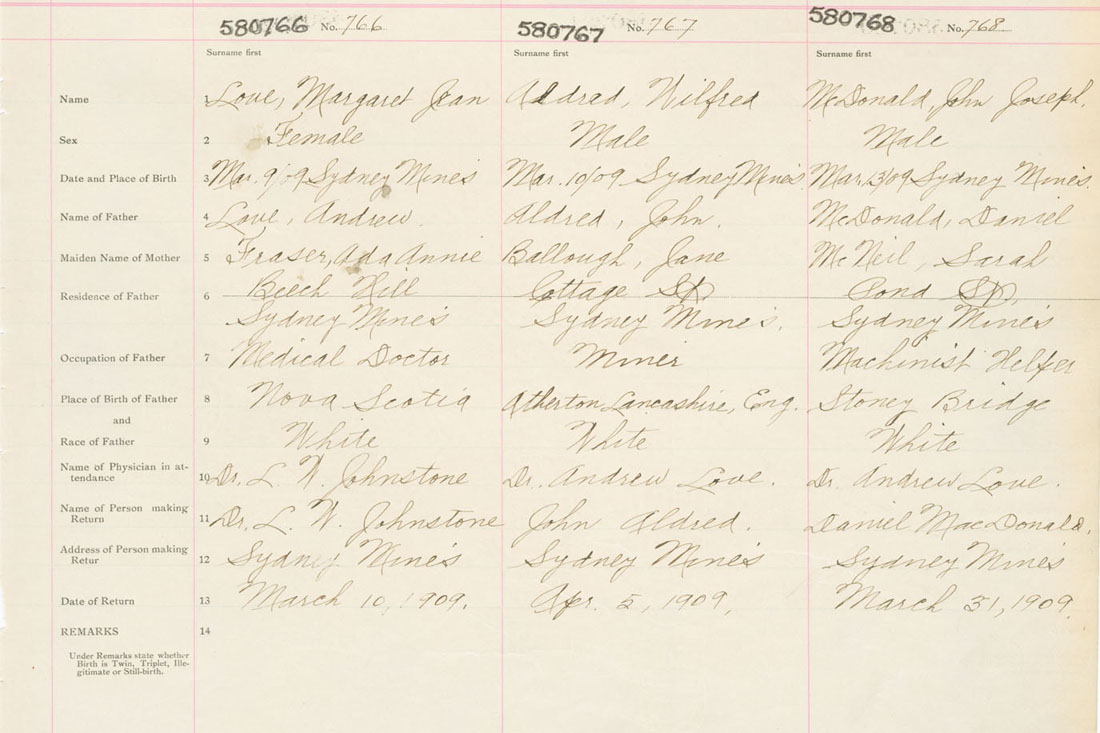 580766 No. 766 580767 No. 767 580768 No. 768
Surname first Surname first Surname first
Name 1 Love, Margaret Jean Aldrad, Wilfred McDonald, John Joseph.
Sex 2 Female Male Male
Date and Place of Birth 3 Mar. 9/09 Sydney Mines Mar. 10/09 Sydney Mines. Mar. 13/09 Sydney Mines.
Name of Father 4 Love, Andrew. Aldred, John. McDonald, Daniel
Maiden Name of Mother 5 Fraser, Ada Annie Ballough, Jane McNeil, Sarah
Residence of Father 6 Beech Hill Cottage St Pond St,
Sydney Mines Sydney Mines. Sydney Mines
Occupation of Father 7 Medical Doctor Miner Machinist Helper
Place of Birth of Father 8 Nova Scotia Atherton, Lancashire, Eng. Stoney Bridge
and
Race of Father 9 White White White
Name of Physician in at-
tendance 10 Dr. L. W. Johnstone Dr. Andrew Love. Dr. Andrew Love.
Name of Person making
Return 11 Dr. L. W. Johnstone John Aldred. Daniel MacDonald.
Address of Person making
Retur 12 Sydney Mines Sydney Mines Sydney Mines
Date of Return 13 March 10, 1909. Apr. 5, 1909, March 31, 1909.
REMARKS 14
Under Remarks state whether
Birth is Twin, Triplet, Ille-
gitimate or Still-birth.